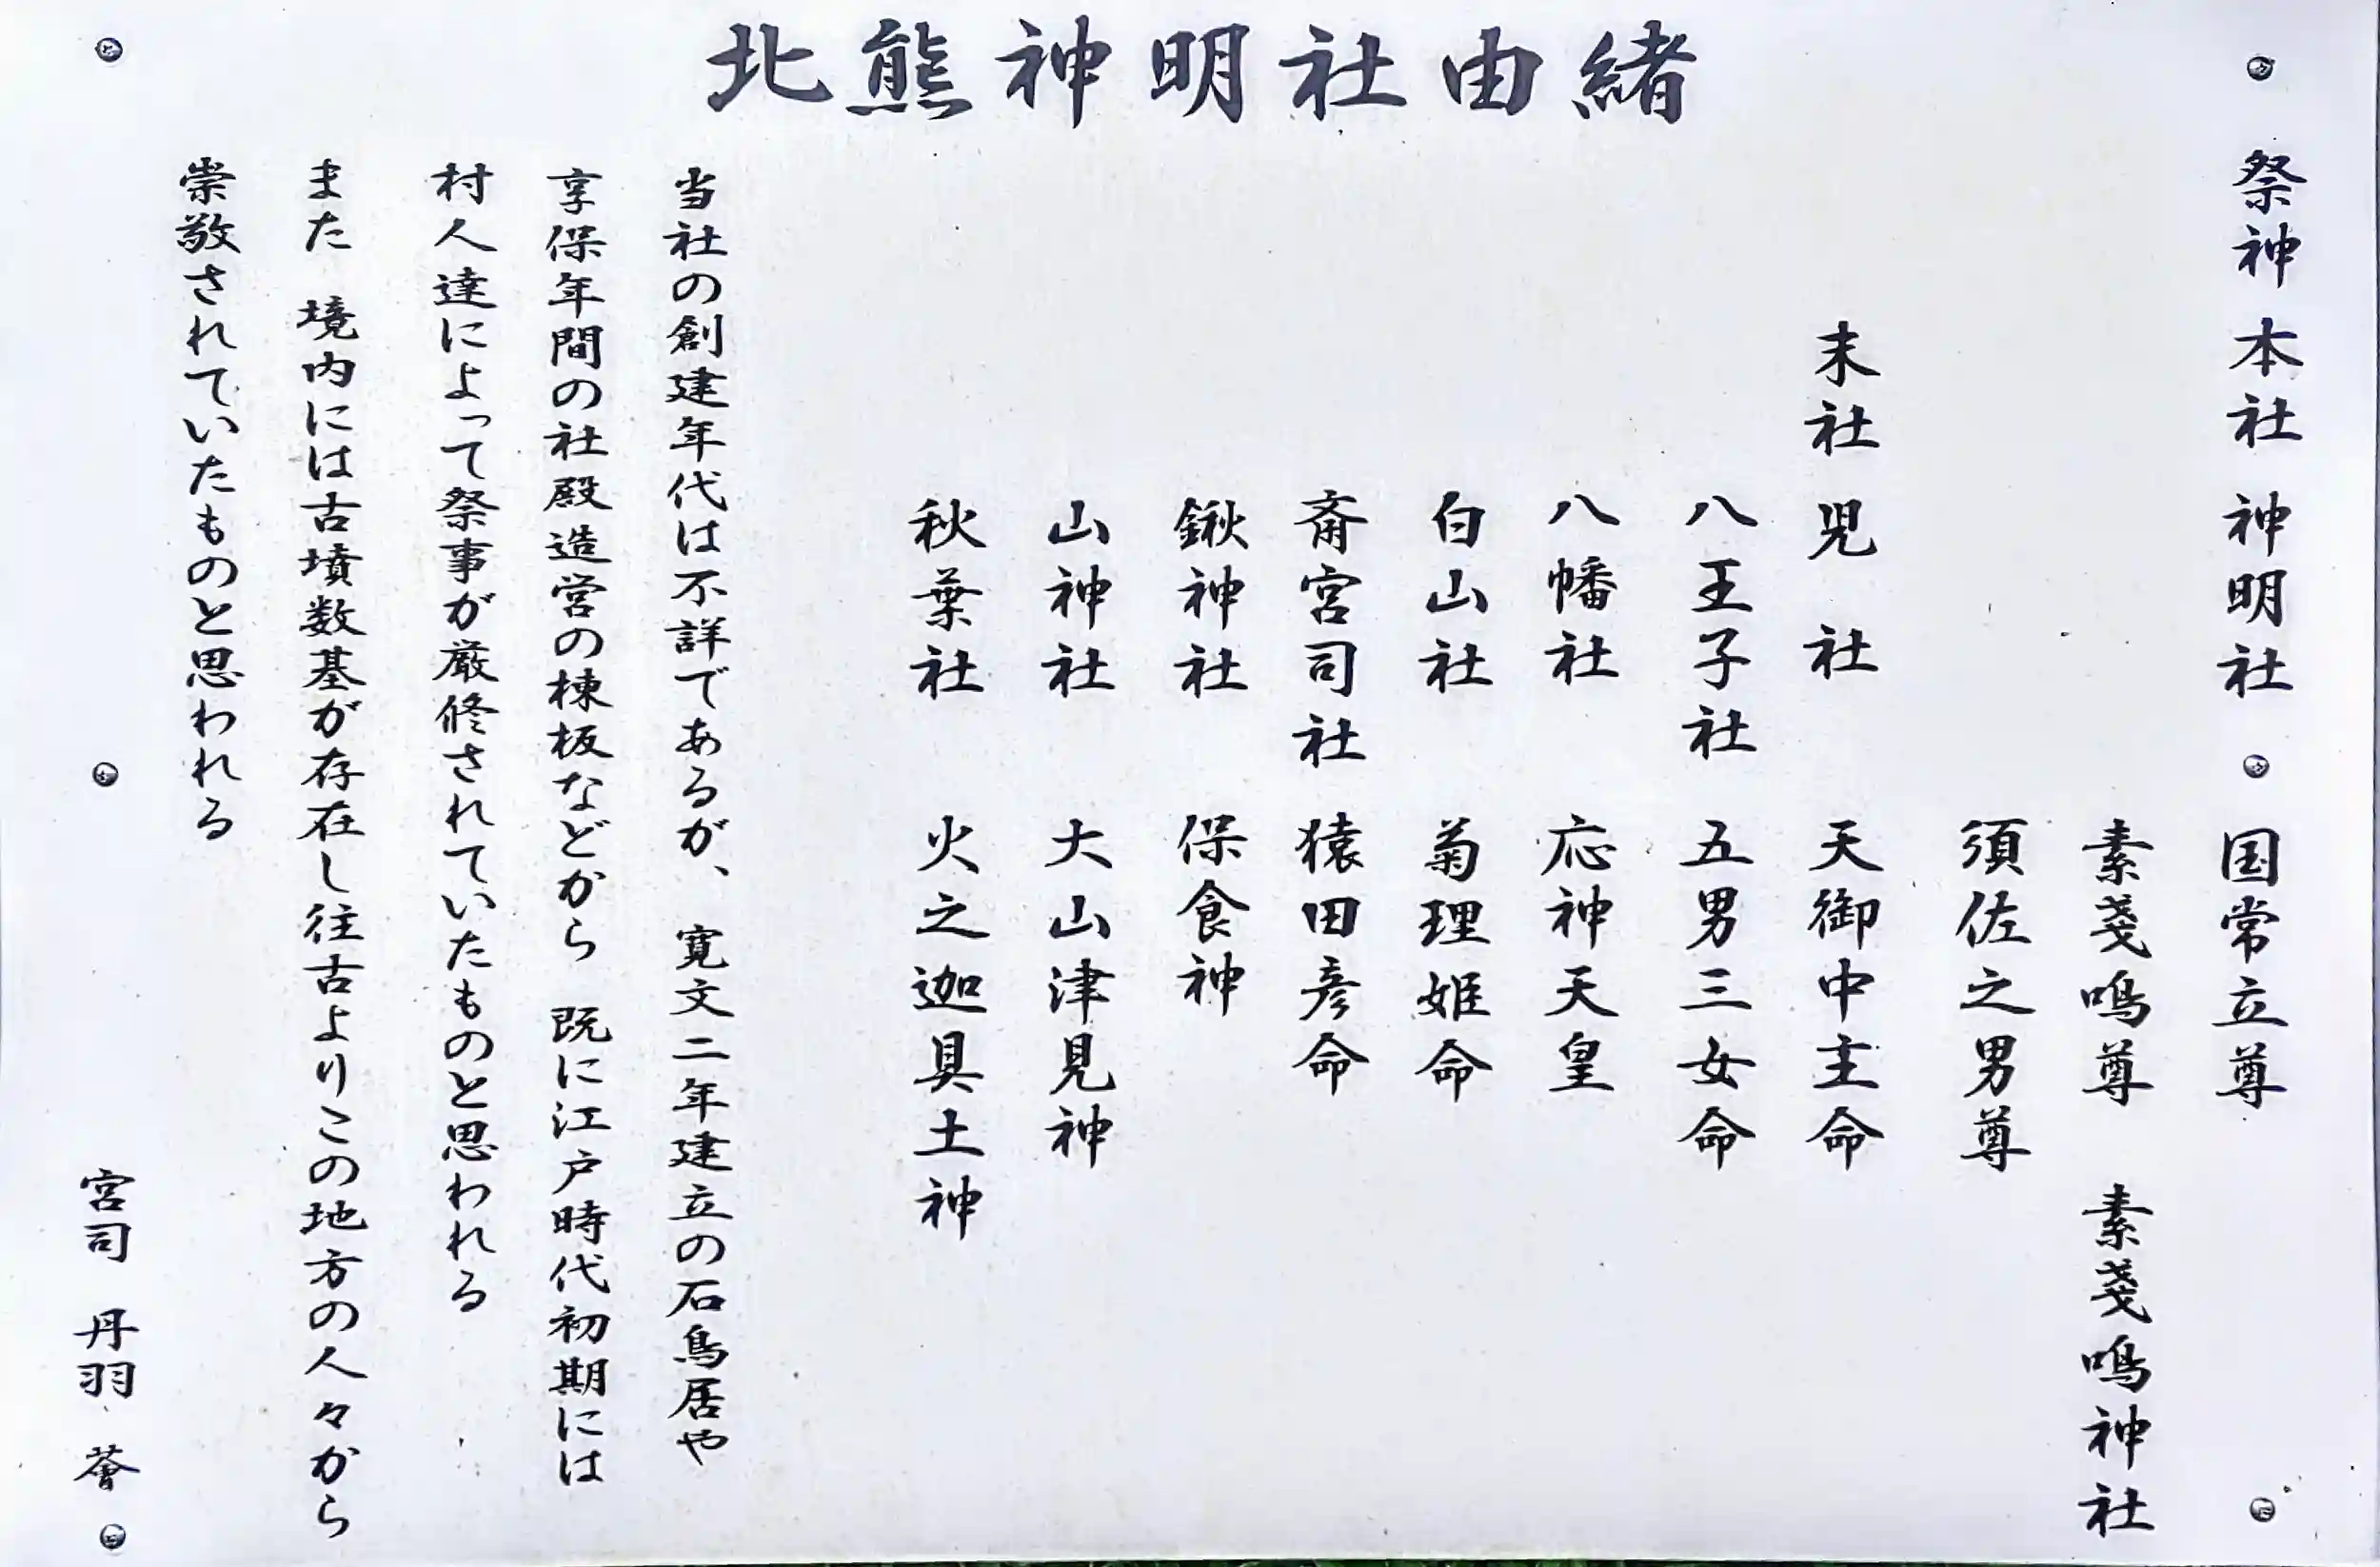 北熊神明社由緒
祭神 本社 神明社 国常立尊
素戔鳴尊 素戔鳴神社
須佐之男尊
末社 児社 天御中主命
八王子社 五男三女命
八幡社 応神天皇
白山社 菊理姫命
斎宮司社 猿田彦命
鍬神社 保食神
山神社 大山津見神
秋葉社 火之迦具土神
当社の創建年代は不詳であるが、寛文二年建立の石鳥居や
享保年間の社殿造営の棟板などから 既に江戸時代初期には
村人達によって祭事が厳修されていたものと思われる
また 境内には古墳数基が存在し往古よりこの地方の人々から
崇敬されていたものと思われる
宮司 丹羽 薈